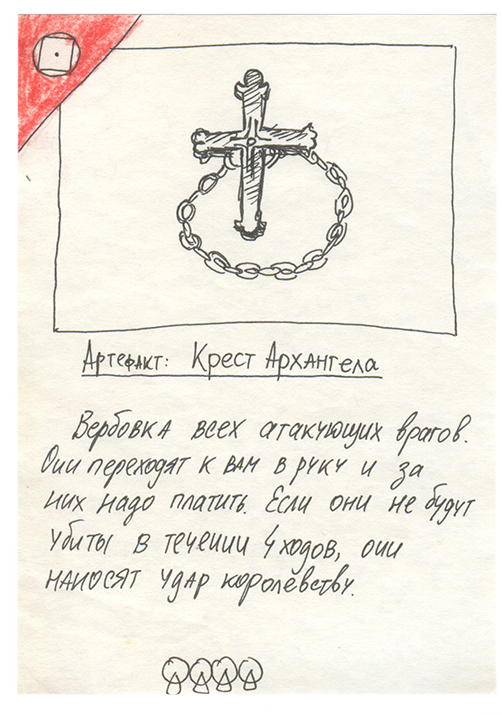 Артефакт: Крест Архангела
Вербовка всех атакующих врагов.
Они переходят к вам в руку и за
них надо платить. Если они не будут
убиты в течении 4 ходов, они
наносят удар королевству.